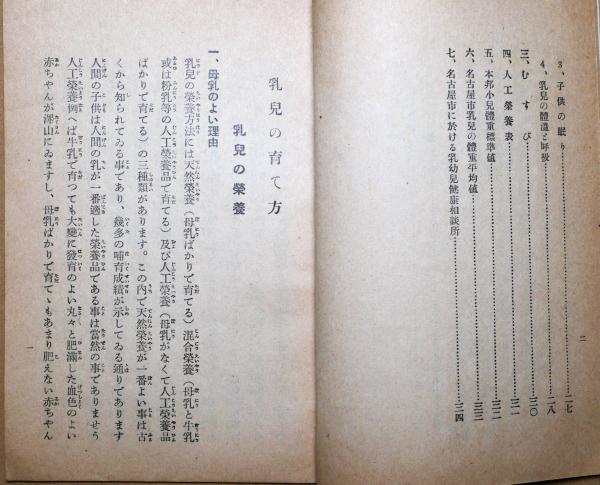 3、子供の眠り……二七
4、乳兒の體溫と呼吸……二八
三、むすび……三〇
四、人工榮養表……三一
五、本邦小兒體重標準値……三二
六、名古屋市乳兒の體重平均値……三三
七、名古屋市に於ける乳幼兒健康相談所……三四
二
乳兒の育て方
乳兒の榮養
一、母乳のよい理由
乳兒の榮養方法には天然榮養（母乳ばかりで育てる）混合榮養（母乳と牛乳
或は粉乳等の人工榮養品で育てる）及び人工榮養（母乳がなくて人工榮養品
ばかりで育てる）の三種類があります。この內で天然榮養が一番よい事は古
くから知られてゐる事であり、幾多の哺育成績が示してゐる通りであります
人間の子供は人間の乳が一番適した榮養品である事は當然の事でありませう
人工榮養例へば牛乳で育つても大變に發育のよい丸々と肥滿した血色のよい
赤ちやんが澤山にゐますし、母乳ばかりで育てゝもあまり肥えない赤ちやん
一